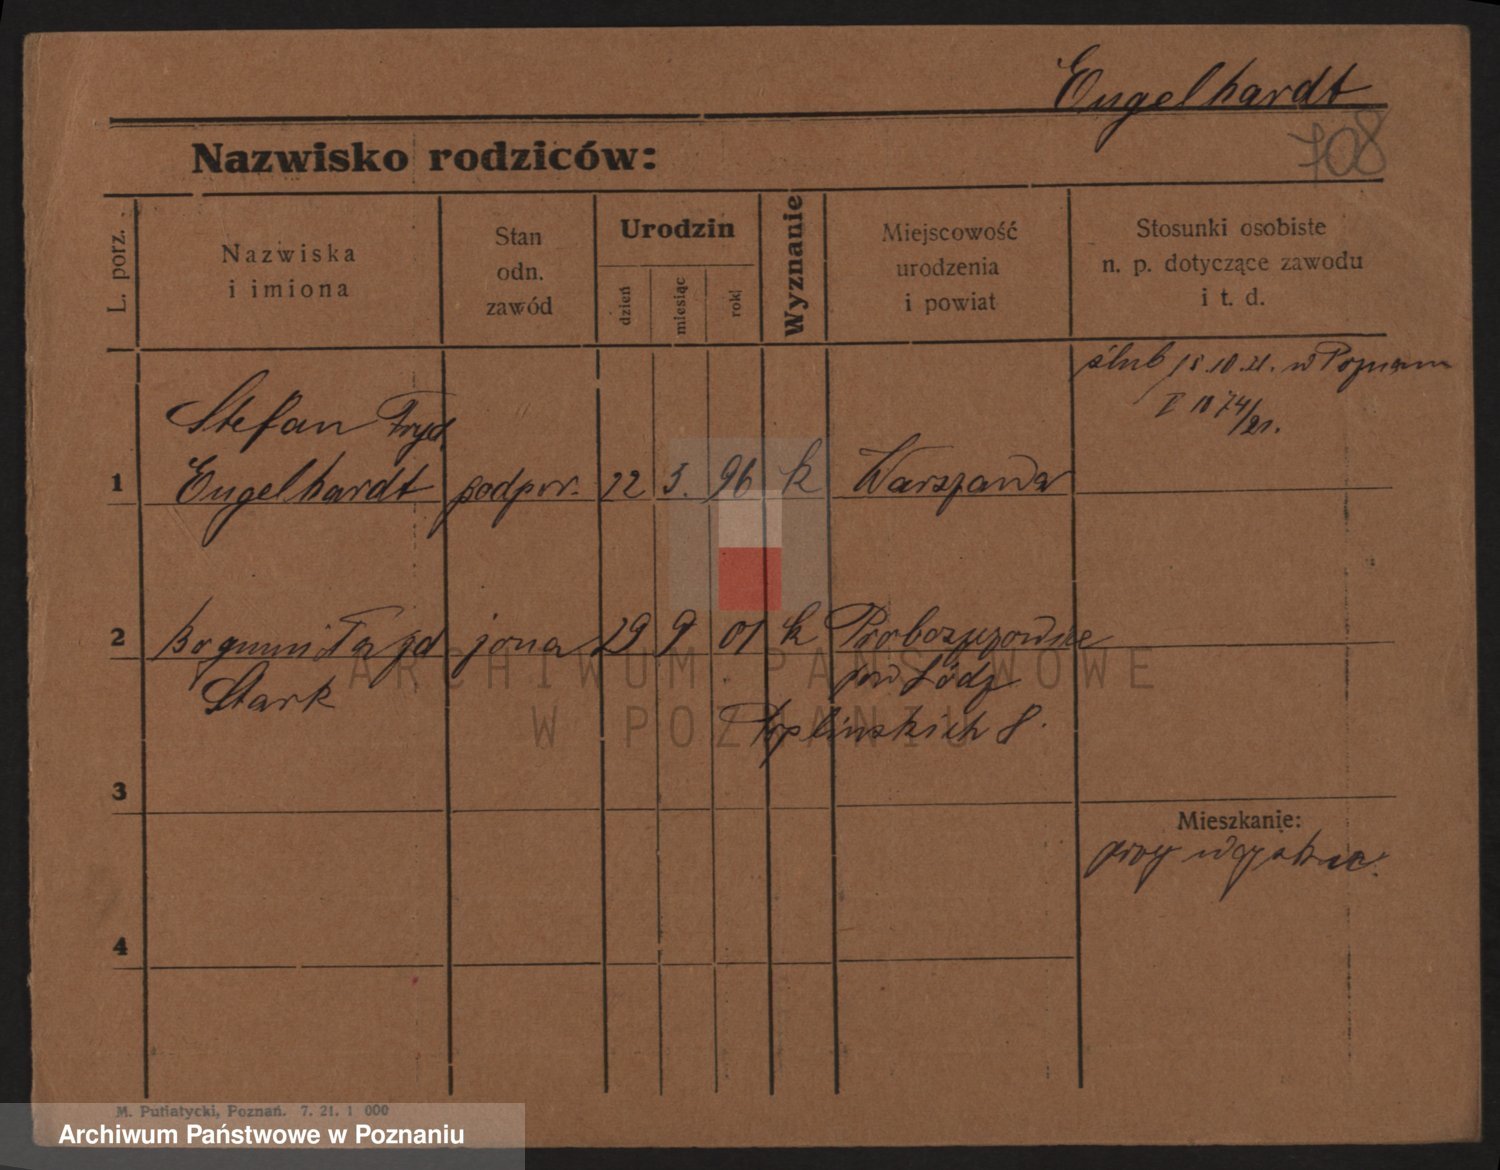 Engelhardt
708
Nazwisko rodziców:
L. porz.
Nazwiska
i imiona
Stan
odn.
zawód
Urodzin
dzień
miesiąc
rok
Wyznanie
Miejscowość
urodzenia
i powiat
Stosunki osobiste
n. p. dotyczące zawodu
i t. d.
ślub 18.10.21. w Poznaniu
I 1074/21.
Stefan Fryd
1 Engelhardt podpor. 22 3. 96 k Warszawa
2 żona 29 9 01 k
Stark pow Łódz
Poplińskich 8.
3
Mieszkanie:
4
M. Putiatycki, Poznań. 7. 21. 1 000
ARCHIWUM PAŃSTWOWE
W POZNANIU
Archiwum Państwowe w Poznaniu